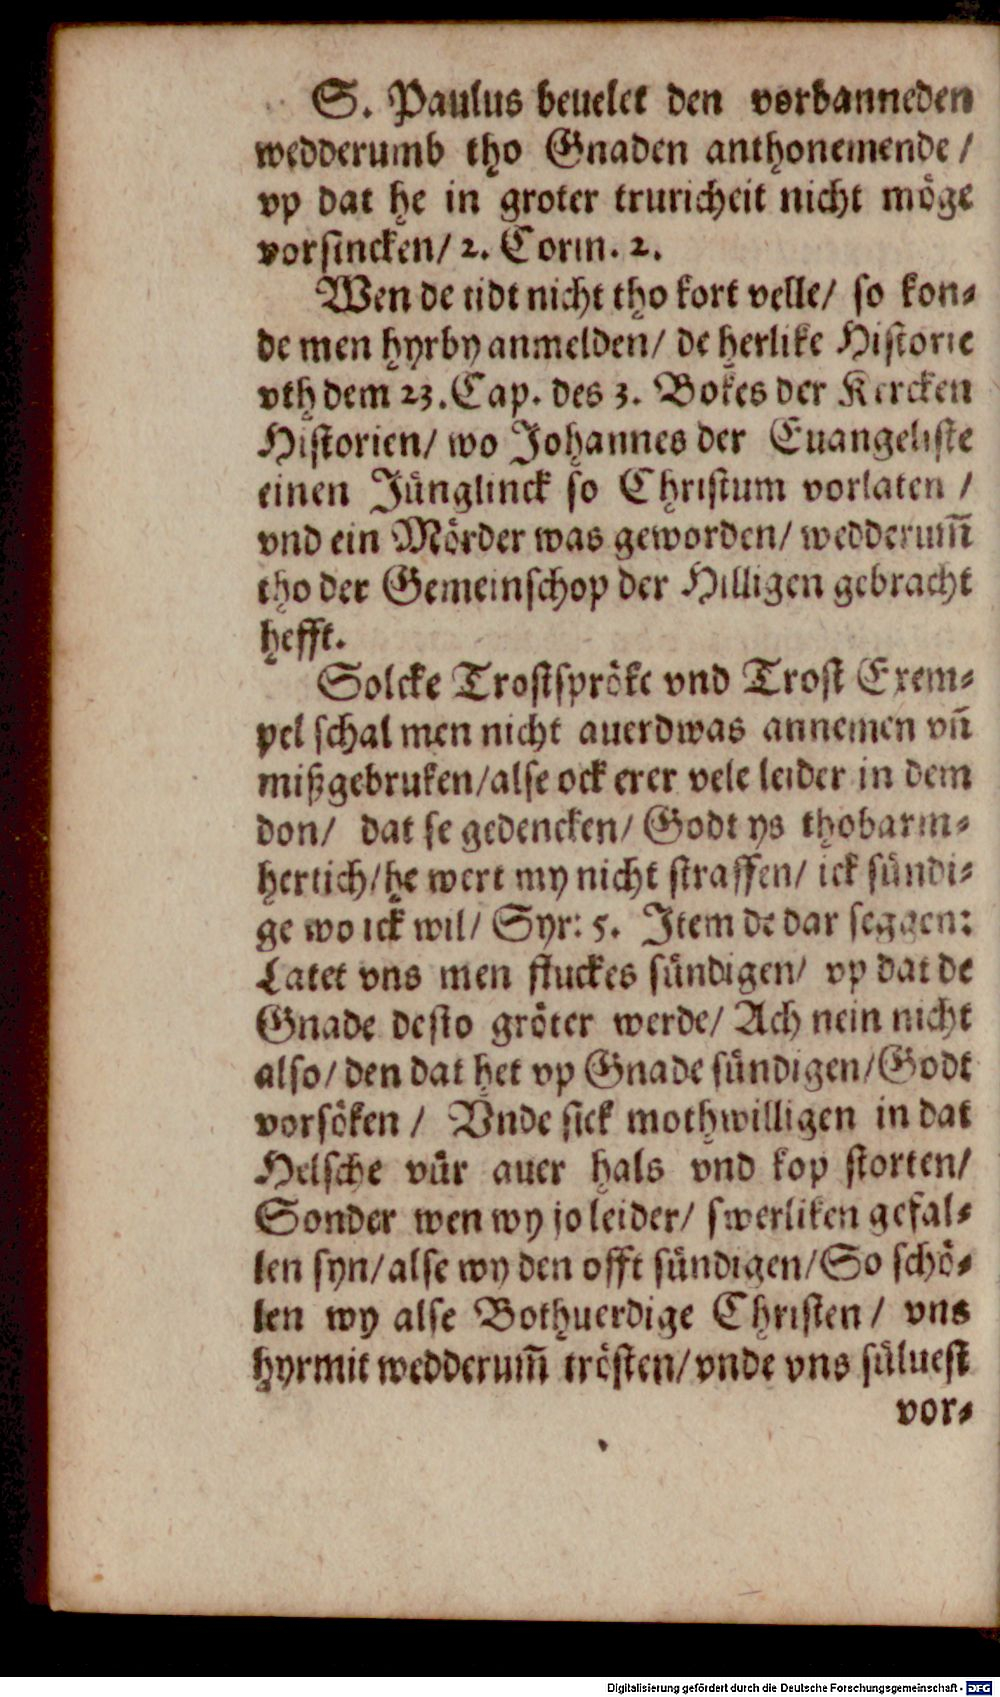 S. Paulus beuelet den vorbanneden
wedderumb tho Gnaden anthonemende /
vp dat he in groter truricheit nicht möge
vorsincken/ 2. Corin. 2.
Wen de tidt nicht tho kort velle/ so kon-
de men hyrby anmelden/ de herlike Historie
vth dem 23. Cap. des 3. Bokes der Kercken
Historien/ wo Johannes der Euangeliste
einen Jünglinck so Christum vorlaten /
vnd ein Mörder was geworden/ wedderum̄
tho der Gemeinschop der Hilligen gebracht
hefft.
Solcke Trostspröke vnd Trost Exem-
pel schal men nicht auerdwas annemen vn̄
mißgebruken/alse ock erer vele leider in dem
don/ dat se gedencken/ Godt ys thobarm-
hertich/he wert my nicht straffen/ ick sündi-
ge wo ick wil/ Syr: 5. Item de dar seggen:
Latet vns men fluckes sündigen/ vp dat de
Gnade desto gröter werde/ Ach nein nicht
also/ den dat het vp Gnade sündigen/Godt
vorsöken / Vnde sick mothwilligen in dat
Helsche vür auer hals vnd kop storten/
Sonder wen wy jo leider/ swerliken gefal-
len syn/alse wy den offt sündigen/So schö-
len wy alse Bothuerdige Christen / vns
hyrmit wedderum̄ trösten/vnde vns süluest
vor-
Digitalisierung gefördert durch die Deutsche Forschungsgemeinschaft - DFG